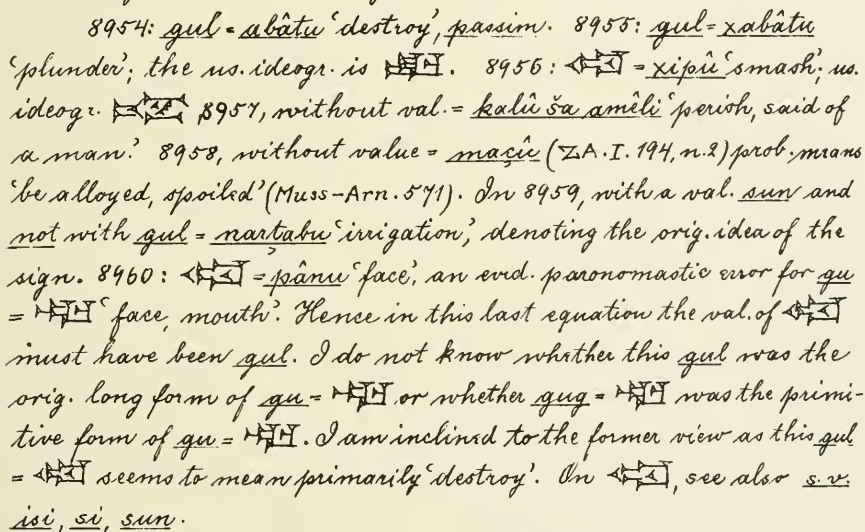 8954: gul = abâtu ‘destroy’, passim. 8955: gul = xabâtu
‘plunder’; the us. ideogr. is . 8956: = xipû ‘smash’; us.
ideogr. 8957, without val. = kalû ša amêli ‘perish, said of
a man’. 8958, without value = maçû (ZA. I. 194, n. 2) prob. means
‘be alloyed, spoiled’ (Muss-Arn. 571). In 8959, with a val. sun and
not with gul = nartabu ‘irrigation’, denoting the orig. idea of the
sign. 8960: = pânu ‘face’, an evid. paronomastic error for gu
= ‘face, mouth’. Hence in this last equation the val. of
must have been gul. I do not know whether this gul was the
orig. long form of gu = or whether gug = was the primi-
tive form of gu = . I am inclined to the former view as this gul
= seems to mean primarily ‘destroy’. On , see also s.v.
isi, si, sun.